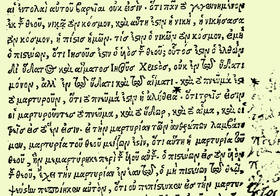 αἱ ἐντολαὶ αὐτοῦ βαρεῖαι οὐκ εἰσίν. ὅτι πᾶν τὸ γεγεννημένον
ἐκ τοῦ θεοῦ, νικᾷ τὸν κόσμον, καὶ αὕτη ἐστὶν ἡ νίκη, ἡ νικήσασα
τὸν κόσμον, ἡ πίστις ἡμῶν. τίς ἐστιν ὁ νικῶν τὸν κόσμον, εἰ μὴ
ὁ πιστεύων, ὅτι ἰησοῦς ἐστιν ὁ υἱὸς τοῦ θεοῦ; οὗτός ἐστιν ὁ ἐλθὼν
δι' ὕδατος καὶ αἵματος Ἰησοῦς Χριστός, οὐκ ἐν τῷ ὕδατι
μόνον, ἀλλ' ἐν τῷ ὕδατι καὶ αἵματι. καὶ τὸ πνεῦμά ἐστι
τὸ μαρτυροῦν, ὅτι τὸ πνεῦμά ἐστιν ἡ ἀλήθεια. ὅτι τρεῖς εἰσιν
οἱ μαρτυροῦντες τὸ πνεῦμα, καὶ τὸ ὕδωρ, καὶ τὸ αἷμα, καὶ οἱ
τρεῖς εἰς τὸ ἕν εἰσιν. εἰ τὴν μαρτυρίαν τῶν ἀνθρώπων λαμβάνο
μεν, ἡ μαρτυρία τοῦ θεοῦ μείζων ἐστίν, ὅτι αὕτη ἐστὶν ἡ μαρτυρία τοῦ
θεοῦ, ἣν μεμαρτύρηκε περὶ τοῦ υἱοῦ αὐτοῦ. ὁ πιστεύων εἰς τὸν υἱὸν
τοῦ θεοῦ, ἔχει τὴν μαρτυρίαν ἐν ἑαυτῷ, ὁ μὴ πιστεύων τῷ θεῷ
ψεύστην πεποίηκεν αὐτόν, ὅτι οὐ πεπίστευκεν εἰς τὴν μαρτυ